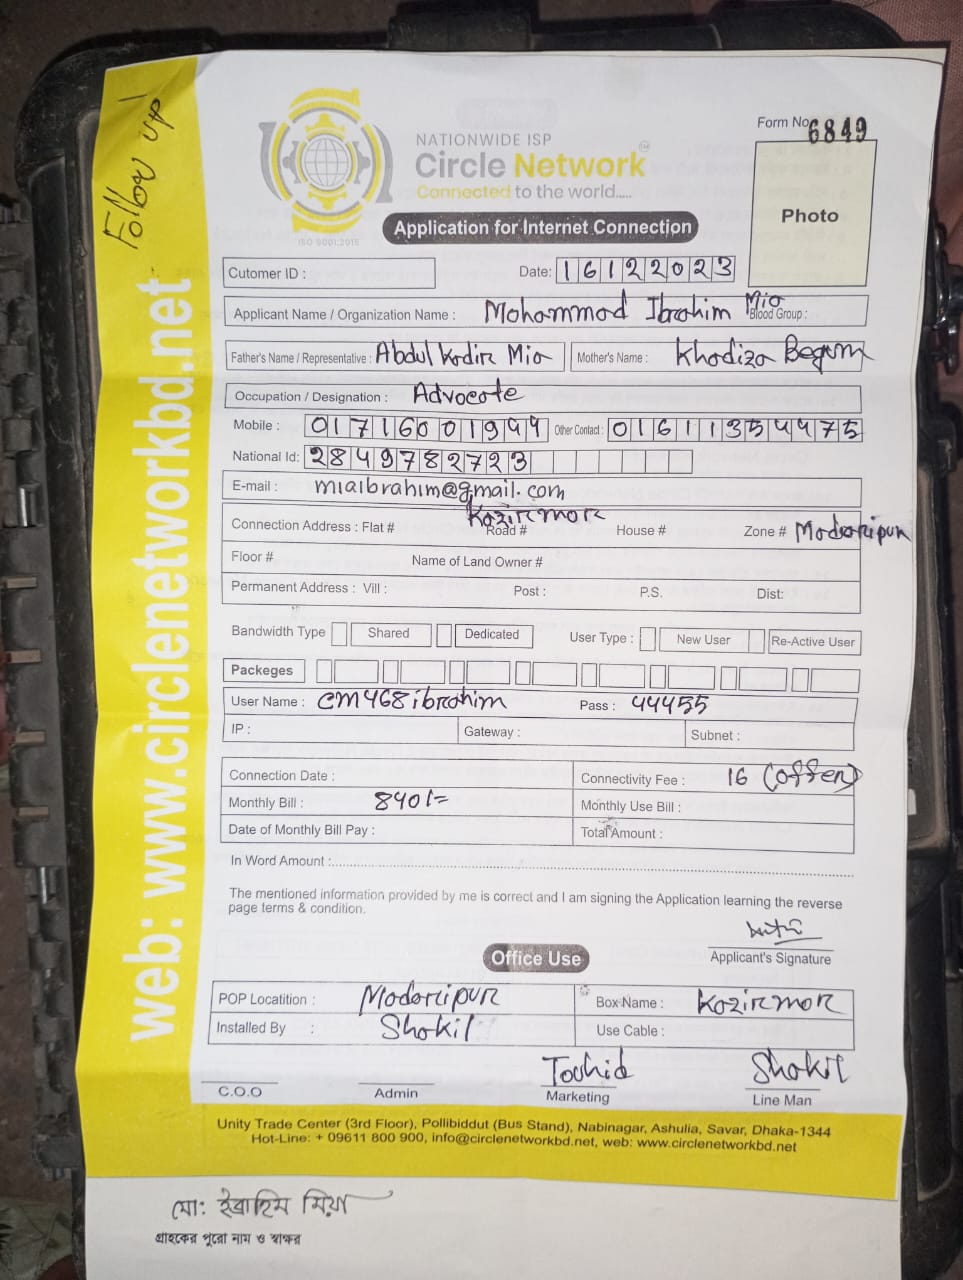 Follow up!
Form No. 6849
NATIONWIDE ISP
Circle Network
Connected to the world.....
ISO 9001:2015
Photo
Application for Internet Connection
Cutomer ID : Date: 16122023
Applicant Name / Organization Name : Mohammad Ibrahim Mia Blood Group :
Father's Name / Representative : Abdul Kadir Mia Mother's Name : Khadiza Begum
Occupation / Designation : Advocate
Mobile : 01716001944 Other Contact : 01611354475
National Id: 2849782723
E-mail : miaibrahim@gmail.com
Connection Address : Flat # Road # Kazirmor House # Zone # Madaripur
Floor # Name of Land Owner #
Permanent Address : Vill : Post : P.S. Dist:
Bandwidth Type Shared Dedicated User Type : New User Re-Active User
Packeges
User Name : cm468ibrahim Pass : 44455
IP : Gateway : Subnet :
Connection Date : Connectivity Fee : 16 (offer)
Monthly Bill : 840/= Monthly Use Bill :
Date of Monthly Bill Pay : Total Amount :
In Word Amount :
The mentioned information provided by me is correct and I am signing the Application learning the reverse
page terms & condition.
Applicant's Signature
Office Use
POP Locatition : Madaripur Box Name : Kazirmor
Installed By : Shakil Use Cable :
Touhid Shakil
C.O.O Admin Marketing Line Man
Unity Trade Center (3rd Floor), Pollibiddut (Bus Stand), Nabinagar, Ashulia, Savar, Dhaka-1344
Hot-Line: + 09611 800 900, info@circlenetworkbd.net, web: www.circlenetworkbd.net
web: www.circlenetworkbd.net
মো: ইব্রাহিম মিয়া
গ্রাহকের পুরো নাম ও স্বাক্ষর